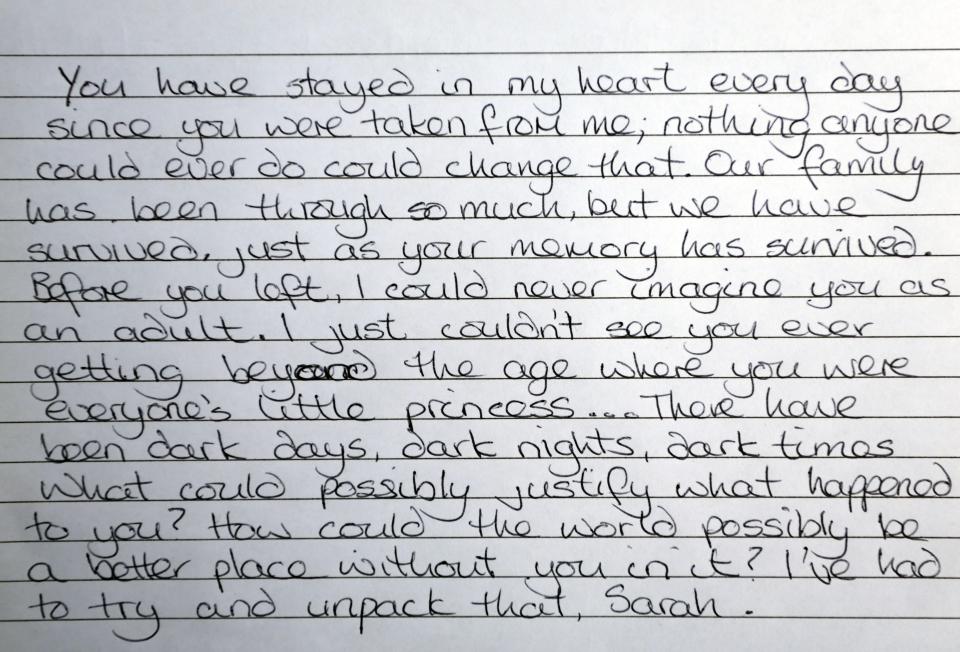 You have stayed in my heart every day
since you were taken from me; nothing anyone
could ever do could change that. Our family
has been through so much, but we have
survived, just as your memory has survived.
Before you left, I could never imagine you as
an adult. I just couldn't see you ever
getting beyond the age where you were
everyone's little princess.... There have
been dark days, dark nights, dark times
What could possibly justify what happened
to you? How could the world possibly be
a better place without you in it? I've had
to try and unpack that, Sarah.